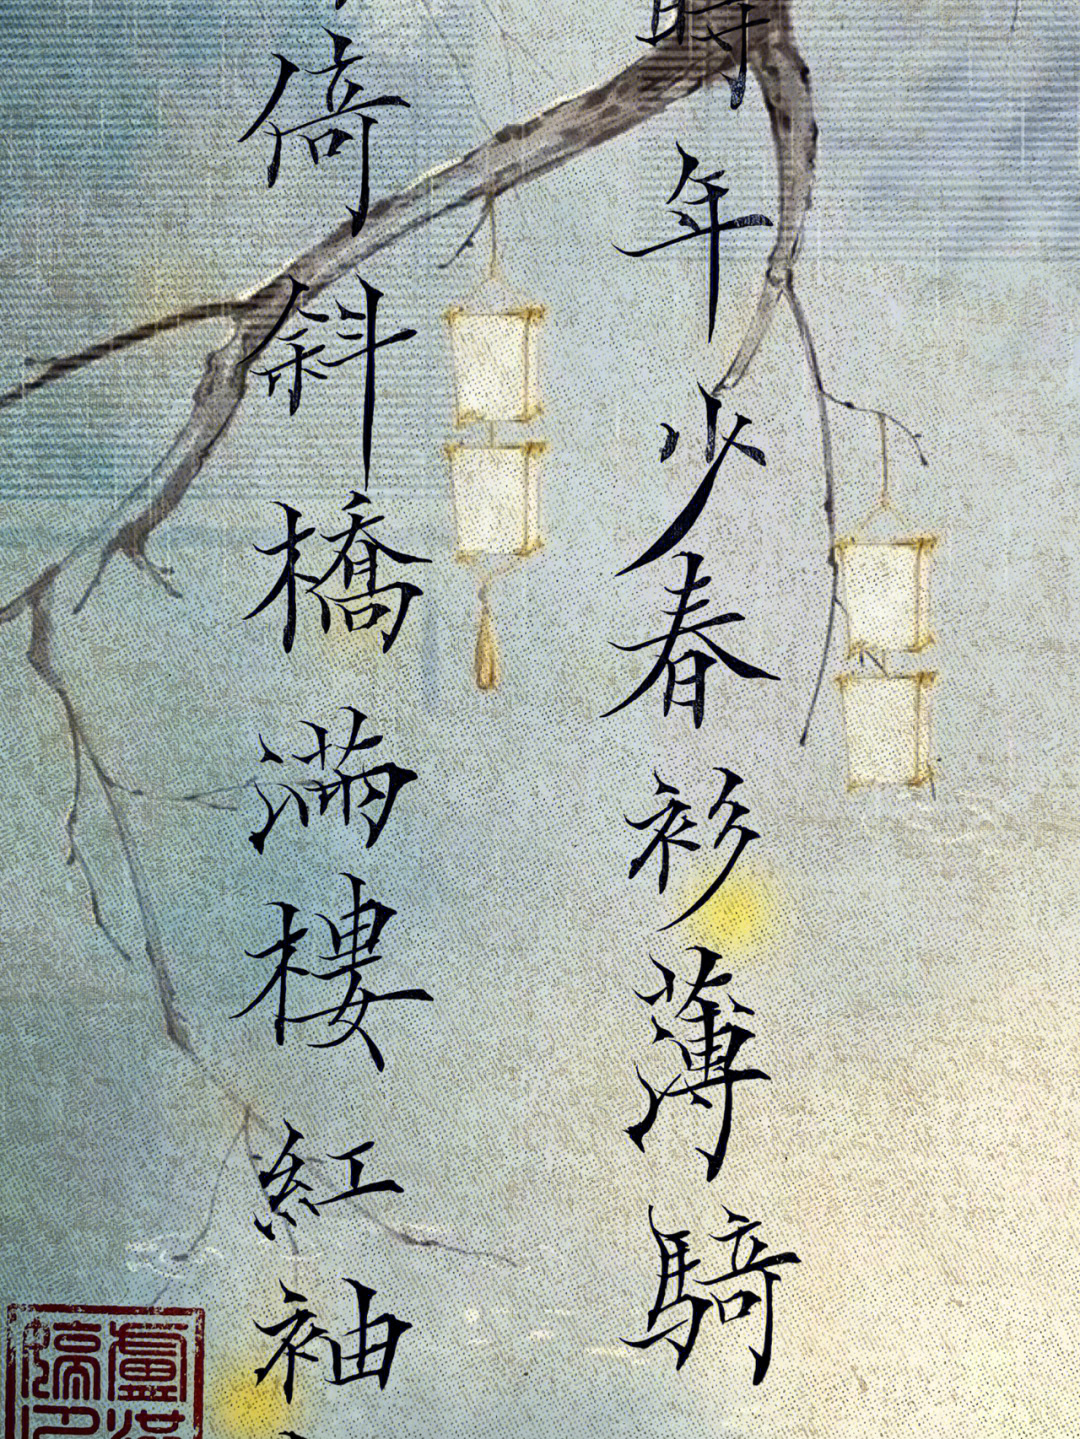 時年少春衫薄騎
倚斜橋滿樓紅袖